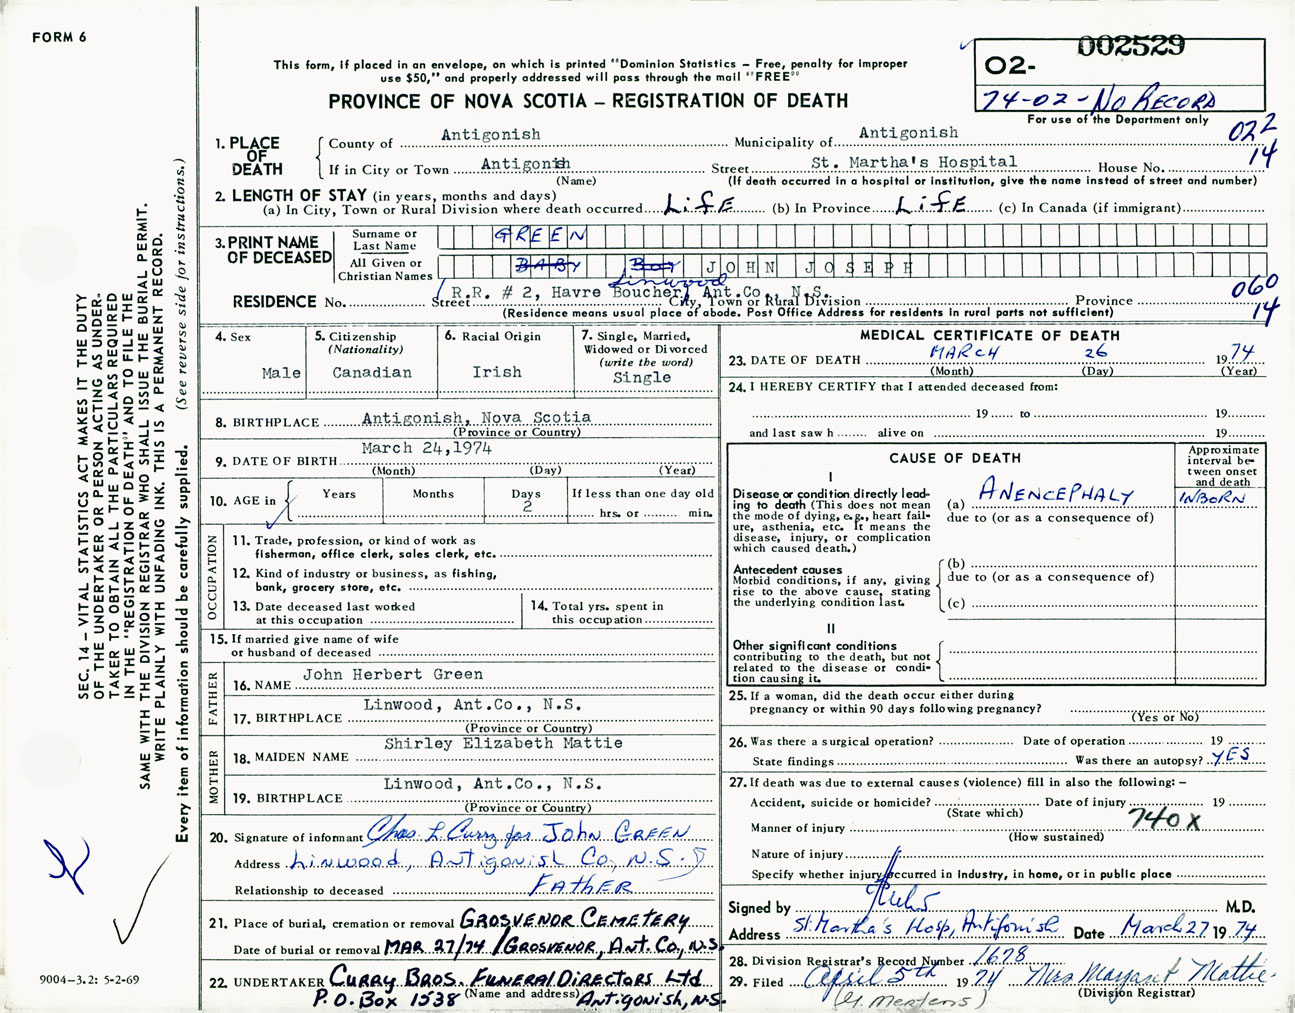 FORM 6
002529
This form, if placed in an envelope, on which is printed "Dominion Statistics – Free, penalty for improper
use $50," and properly addressed will pass through the mail "FREE"
O2-
74-02-No RECORD
PROVINCE OF NOVA SCOTIA – REGISTRATION OF DEATH
For use of the Department only
022
14
1. PLACE OF DEATH
County of Antigonish Municipality of Antigonish
If in City or Town Antigonish Street St. Martha's Hospital House No.
(Name) (If death occurred in a hospital or institution, give the name instead of street and number)
2. LENGTH OF STAY (in years, months and days)
(a) In City, Town or Rural Division where death occurred LifE (b) In Province LifE (c) In Canada (if immigrant)
3. PRINT NAME OF DECEASED
Surname or Last Name GREEN
All Given or Christian Names BABY Boy JOHN JOSEPH
Linwood
R.R. # 2, Havre Boucher, Ant.Co., N.S.
RESIDENCE No. Street City, Town or Rural Division Province
060
14
(Residence means usual place of abode. Post Office Address for residents in rural parts not sufficient)
4. Sex Male
5. Citizenship (Nationality) Canadian
6. Racial Origin Irish
7. Single, Married, Widowed or Divorced (write the word) Single
8. BIRTHPLACE Antigonish, Nova Scotia
(Province or Country)
9. DATE OF BIRTH March 24,1974
(Month) (Day) (Year)
10. AGE in Years Months Days 2 If less than one day old
hrs. or min.
OCCUPATION
11. Trade, profession, or kind of work as
fisherman, office clerk, sales clerk, etc.
12. Kind of industry or business, as fishing,
bank, grocery store, etc.
13. Date deceased last worked
at this occupation
14. Total yrs. spent in
this occupation
15. If married give name of wife
or husband of deceased
FATHER
16. NAME John Herbert Green
17. BIRTHPLACE Linwood, Ant.Co., N.S.
(Province or Country)
MOTHER
18. MAIDEN NAME Shirley Elizabeth Mattie
19. BIRTHPLACE Linwood, Ant.Co., N.S.
(Province or Country)
20. Signature of informant Chas L Curry for JOHN GREEN
Address Linwood, Antigonish Co, N.S.
Relationship to deceased FATHER
21. Place of burial, cremation or removal GROSVENOR CEMETERY
Date of burial or removal MAR 27/74 / GROSVENOR, ANT. CO, N.S.
22. UNDERTAKER CURRY BROS. FUNERAL DIRECTORS LTD
(Name and address)
P.O. BOX 1538 ANTIGONISH, N.S.
MEDICAL CERTIFICATE OF DEATH
23. DATE OF DEATH MARCH 26 1974
(Month) (Day) (Year)
24. I HEREBY CERTIFY that I attended deceased from:
19 to 19
and last saw h alive on 19
CAUSE OF DEATH
Approximate interval between onset and death
I
Disease or condition directly lead-
ing to death (This does not mean
the mode of dying, e.g., heart fail-
ure, asthenia, etc. It means the
disease, injury, or complication
which caused death.)
(a) ANENCEPHALY INBORN
due to (or as a consequence of)
Antecedent causes
Morbid conditions, if any, giving
rise to the above cause, stating
the underlying condition last.
(b)
due to (or as a consequence of)
(c)
II
Other significant conditions
contributing to the death, but not
related to the disease or condi-
tion causing it.
25. If a woman, did the death occur either during
pregnancy or within 90 days following pregnancy?
(Yes or No)
26. Was there a surgical operation? Date of operation 19
State findings Was there an autopsy? YES
27. If death was due to external causes (violence) fill in also the following: –
Accident, suicide or homicide? Date of injury 19
(State which)
740X
Manner of injury
(How sustained)
Nature of injury
Specify whether injury occurred in industry, in home, or in public place
Signed by M.D.
Address St. Martha's Hosp, Antigonish Date March 27 1974
28. Division Registrar's Record Number 1678
29. Filed April 5th 1974 Mrs Margaret Mattie
(Division Registrar)
(G. Mertens)
SEC. 14 – VITAL STATISTICS ACT MAKES IT THE DUTY
OF THE UNDERTAKER OR PERSON ACTING AS UNDER-
TAKER TO OBTAIN ALL THE PARTICULARS REQUIRED
IN THE "REGISTRATION OF DEATH" AND TO FILE THE
SAME WITH THE DIVISION REGISTRAR WHO SHALL ISSUE THE BURIAL PERMIT.
WRITE PLAINLY WITH UNFADING INK. THIS IS A PERMANENT RECORD.
Every item of information should be carefully supplied. (See reverse side for instructions.)
9004-3.2: 5-2-69